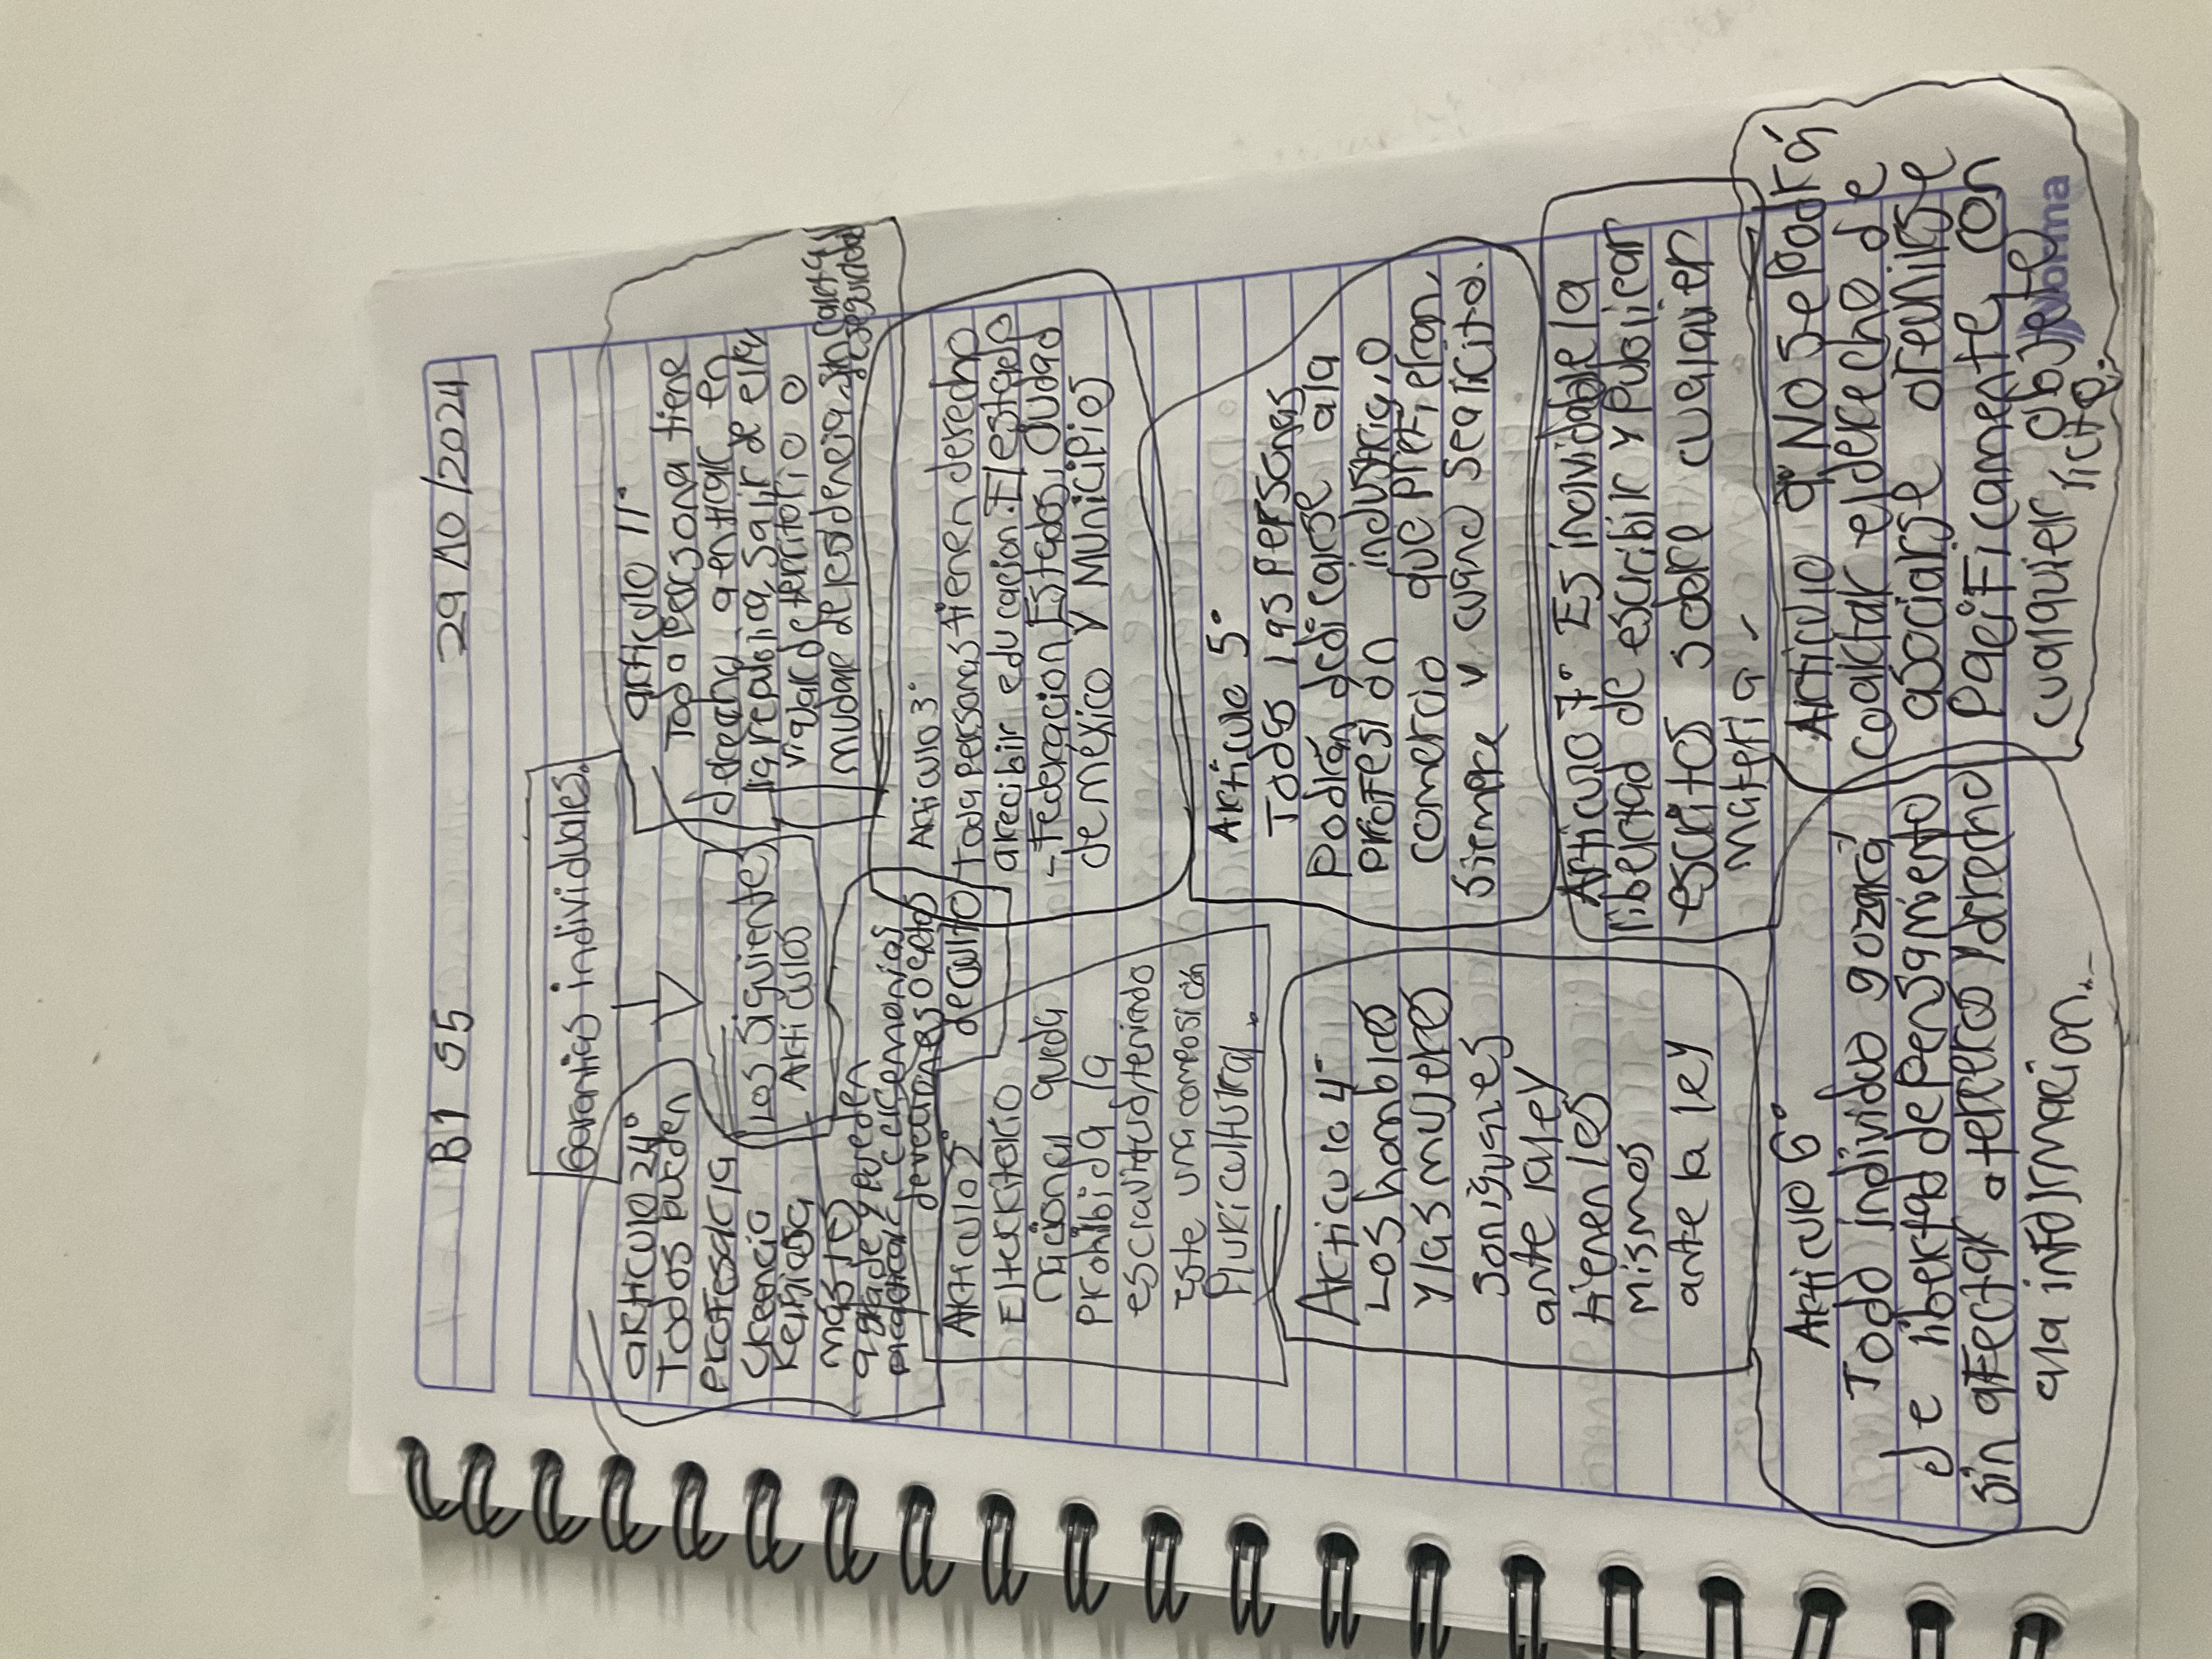 B1 S5 29/10/2024
Garantias individuales.
Los siguientes
Articulos
articulo 11°
Toda persona tiene
derecho a entrar en
la republica, salir de ella
viajar de territorio o
mudar de residencia sin carta
de seguridad
articulo 24°
Todos pueden
profesar la
creencia
religiosa
más les
agrade y pueden
practicar ceremonias
devociones o actos
de culto
Articulo 3°
Toda personas tienen derecho
a recibir educacion. El estado
- Federacion Estados, Ciudad
de méxico y Municipios
Articulo 2°
El territorio
nacional queda
prohibida la
esclavitud, teniendo
este una composición
Pluricultural.
Articulo 5°
Todas las personas
Podrán dedicarse a la
profesión industria, o
comercio que prefieran,
siempre y cuand sea licito.
Articulo 4°
Los hombres
y las mujeres
son iguales
ante la ley
tienen les
mismos
ante la ley
Articulo 7° Es inolvidable la
libertad de escribir y publicar
escritos sobre cualquier
materia.
Articulo 6°
Todo individuo gozará
de libertad de pensamiento
sin afectar a terceros y derecho
a la información.
Articulo 9° No se podrá
coaktar el derecho de
asociarse o reunirse
Pacificamente con
cualquier objeto
licito.
norma